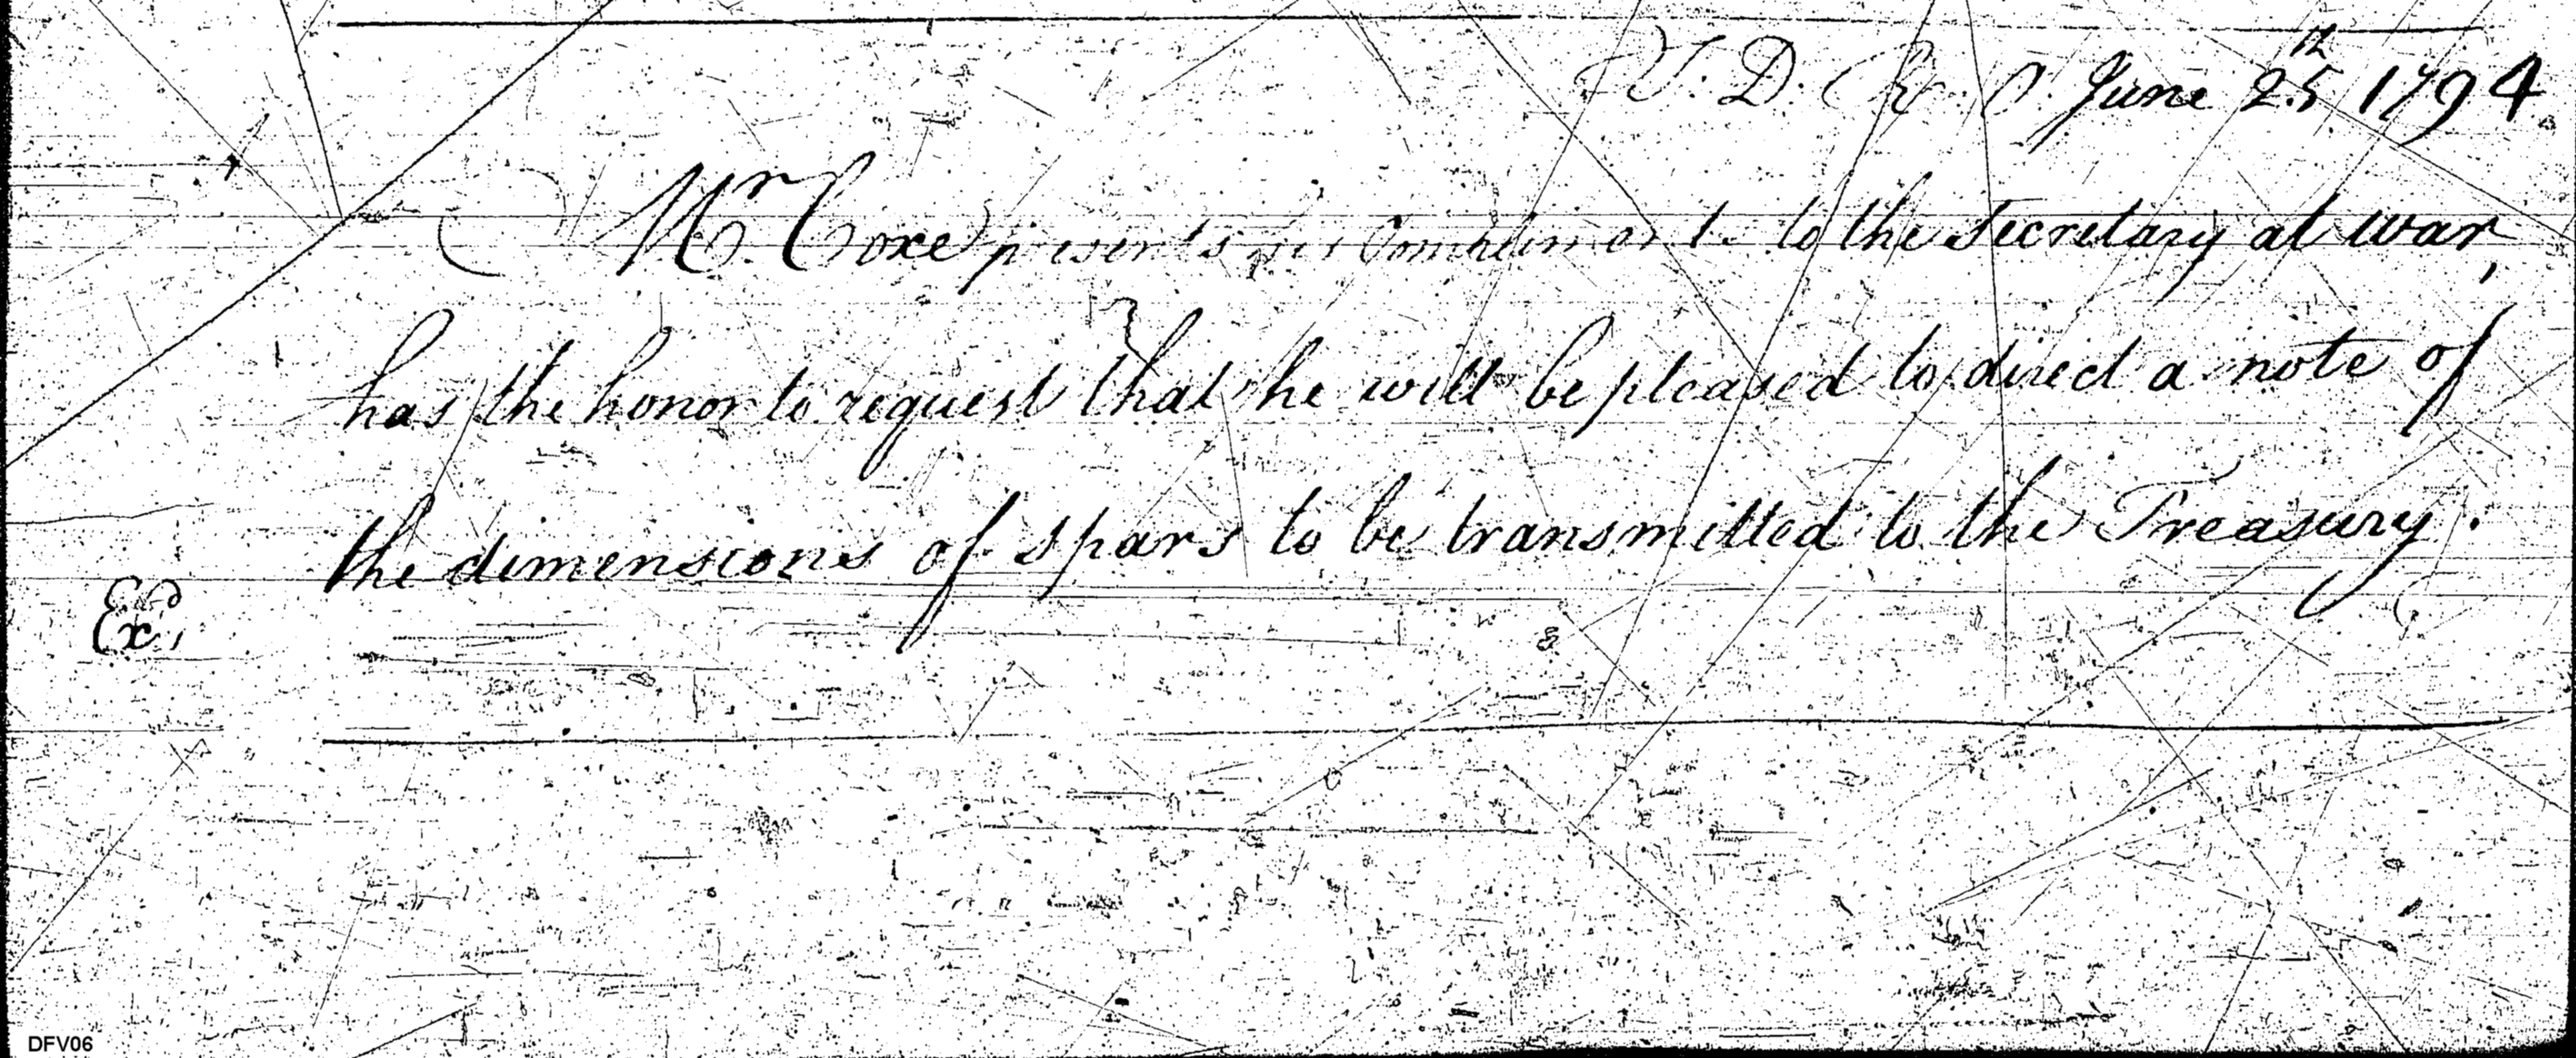 T. D. R. O. June 25th 1794
Mr Coxe presents his Compliments to the secretary at war,
has the honor to request that he will be pleased to direct a note of
the dimensions of spars to be transmitted to the Treasury.
Exd
DFV06